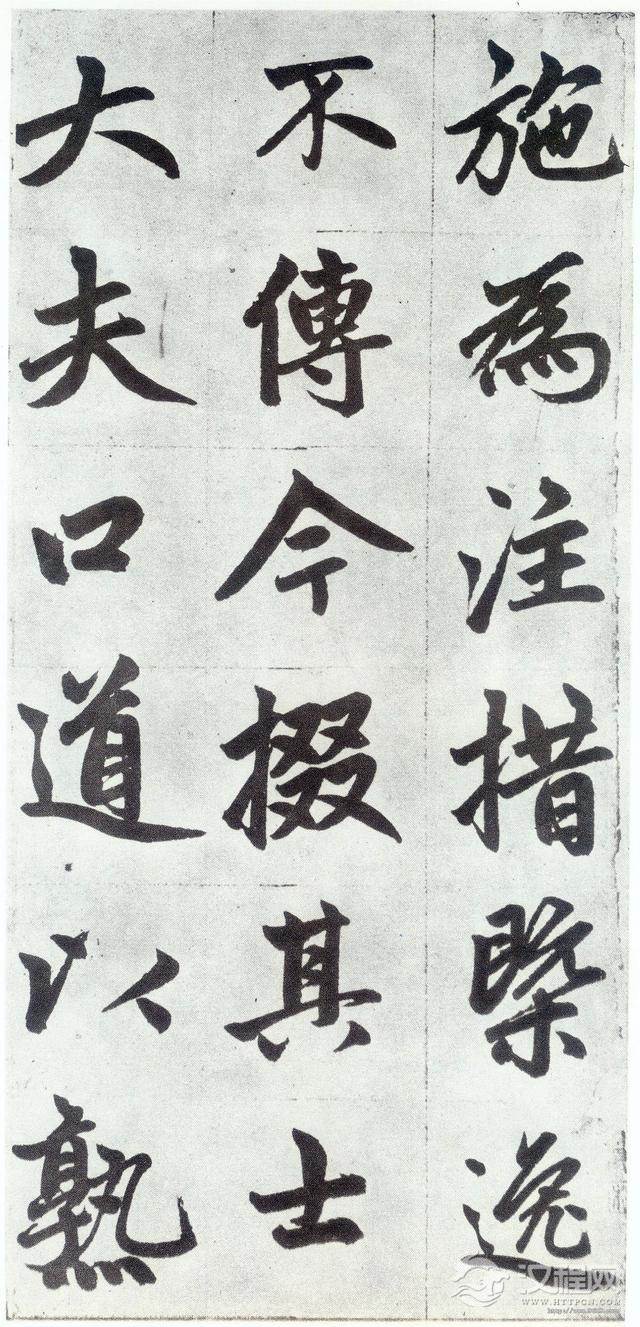 施為注措槩逸
不傳今掇其士
大夫口道以熟
汉程网
WWW.HTTPCN.COM